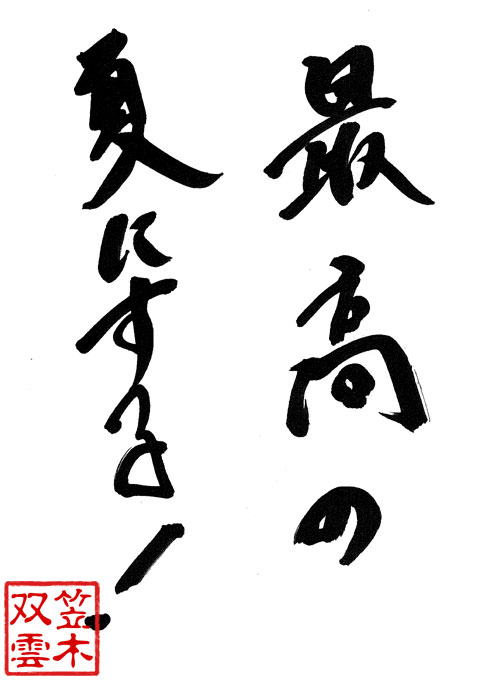 最高の
夏にする！
笠木
双雲